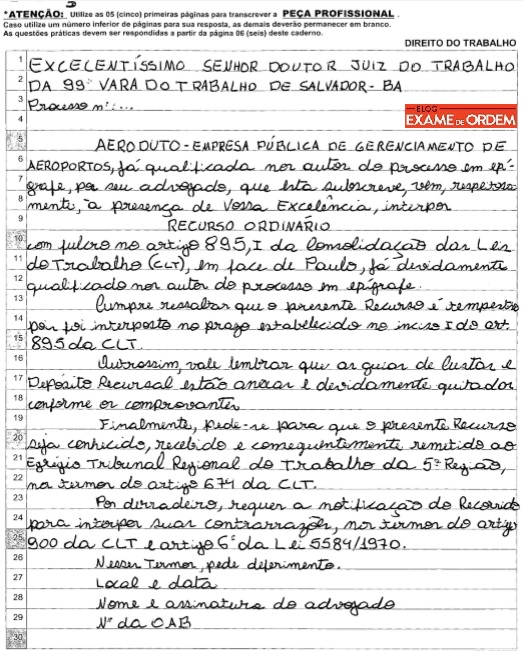 *ATENÇÃO: Utilize as 05 (cinco) primeiras páginas para transcrever a PEÇA PROFISSIONAL.
Caso utilize um número inferior de páginas para sua resposta, as demais deverão permanecer em branco.
As questões práticas devem ser respondidas a partir da página 06 (seis) deste caderno.
DIREITO DO TRABALHO
1 EXCELENTÍSSIMO SENHOR DOUTOR JUIZ DO TRABALHO
2 DA 99ª VARA DO TRABALHO DE SALVADOR - BA
3 Processo nº:...
BLOG
4 EXAME DE ORDEM
5 AERODUTO - EMPRESA PÚBLICA DE GERENCIAMENTO DE
6 AEROPORTOS, já qualificada nos autos do processo em epí-
7 grafe, por seu advogado, que esta subscreve, vem, respeitosa-
8 mente, à presença de Vossa Excelência, interpor
9 RECURSO ORDINÁRIO
10 com fulcro no artigo 895, I da Consolidação das Leis
11 do Trabalho (CLT), em face de Paulo, já devidamente
12 qualificado nos autos do processo em epígrafe.
13 Cumpre ressaltar que o presente Recurso é tempestivo
14 pois foi interposto no prazo estabelecido no inciso I do art.
15 895 da CLT.
16 Outrossim, vale lembrar que as guias de Custas e
17 Depósito Recursal estão anexas e devidamente quitadas
18 conforme os comprovantes
19 Finalmente, pede-se para que o presente Recurso
20 seja conhecido, recebido e consequentemente remetido ao
21 Egrégio Tribunal Regional do Trabalho da 5ª Região,
22 nos termos do artigo 674 da CLT.
23 Por derradeiro, requer a notificação do Recorrido
24 para interpor suas contrarrazões, nos termos do artigo
25 900 da CLT e artigo 6º da Lei 5584/1970.
26 Nesses Termos, pede deferimento.
27 Local e data
28 Nome e assinatura do advogado
29 Nº da OAB
30